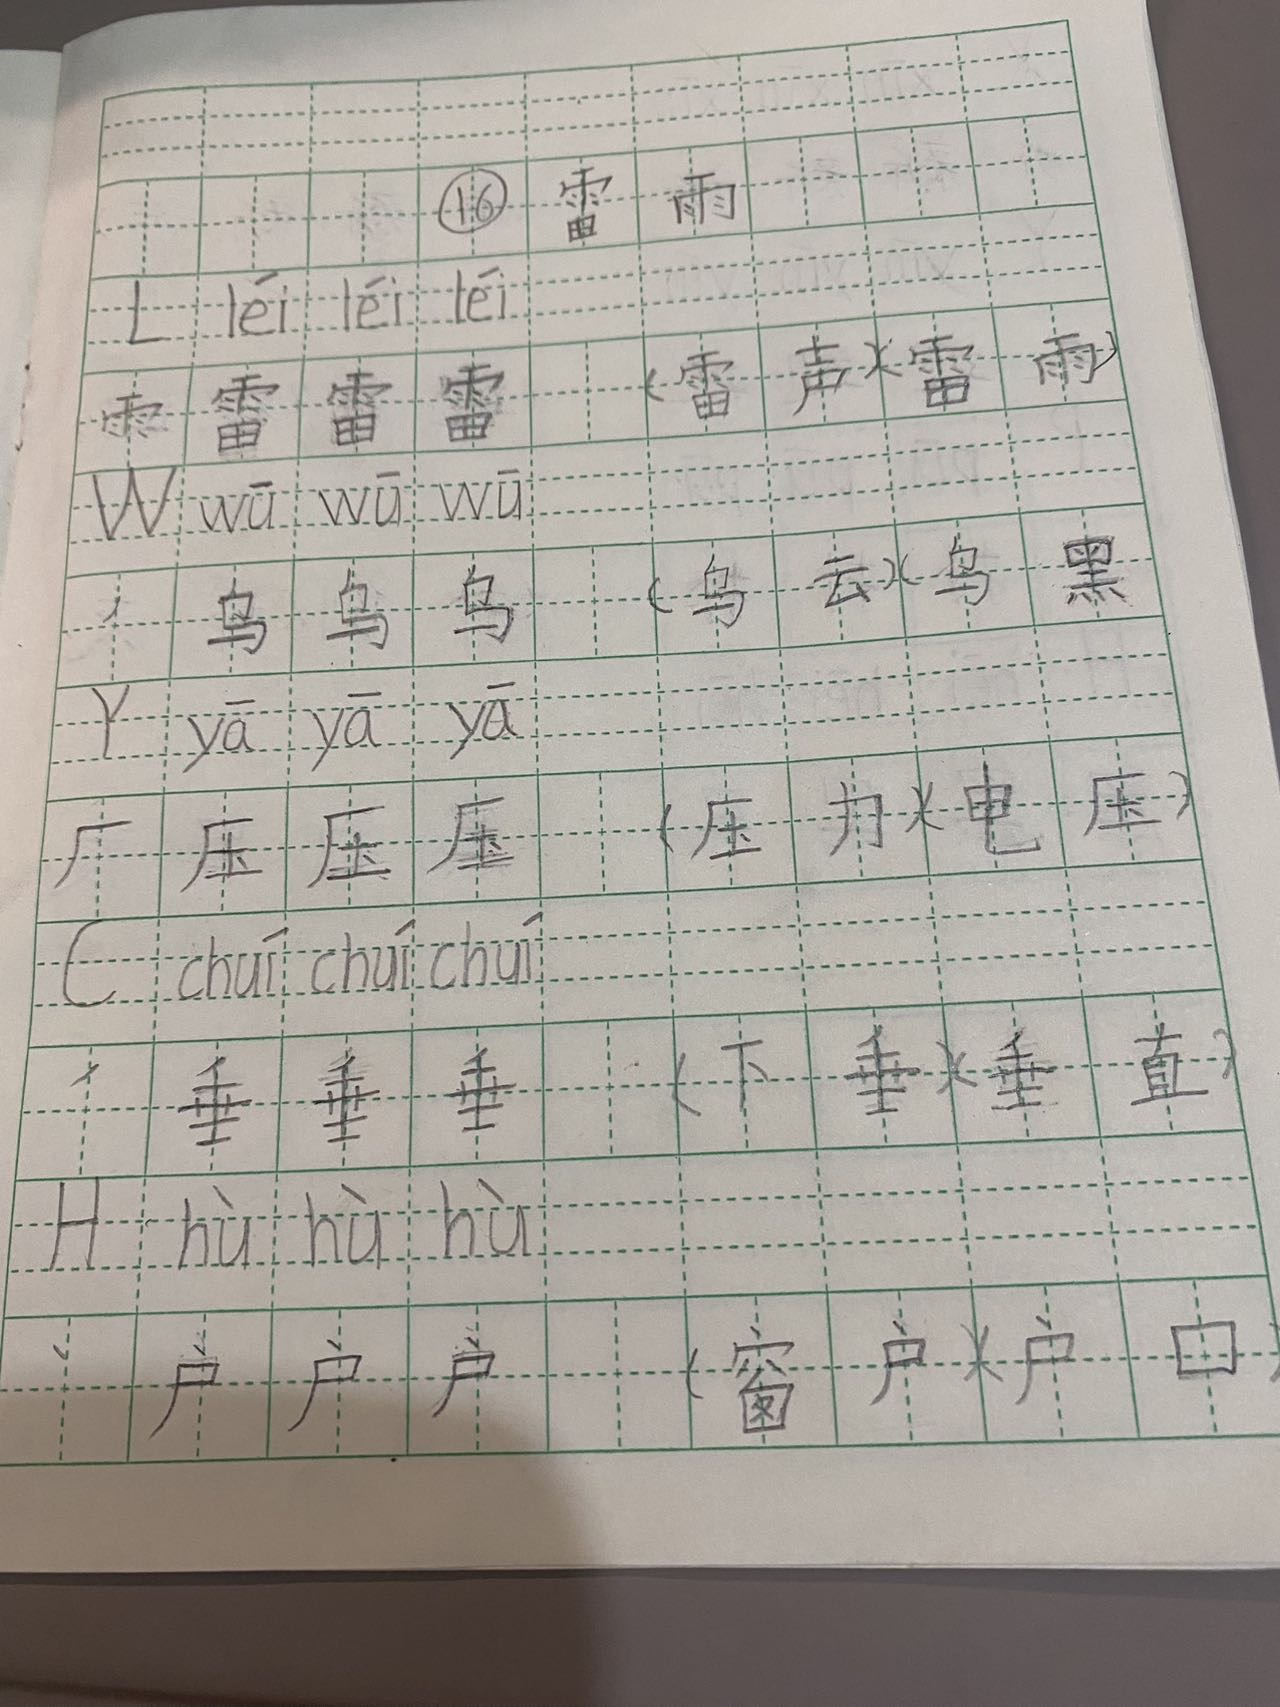 ⑯ 雷 雨
L léi léi léi
⻗ 雷 雷 雷 (雷 声)(雷 雨)
W wū wū wū
丿 乌 乌 乌 (乌 云)(乌 黑
Y yā yā yā
厂 压 压 压 (压 力)(电 压)
C chuí chuí chuí
丿 垂 垂 垂 (下 垂)(垂 直)
H hù hù hù
丶 户 户 户 (窗 户)(户 口)